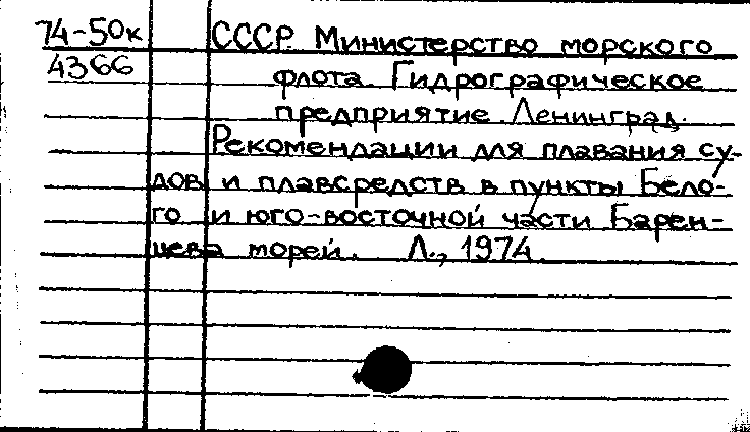 74-50к СССР. Министерство морского
4366 флота. Гидрографическое
предприятие. Ленинград.
Рекомендации для плавания су-
дов и плавсредств в пункты Бело-
го и юго-восточной части Барен-
цева морей. Л., 1974.